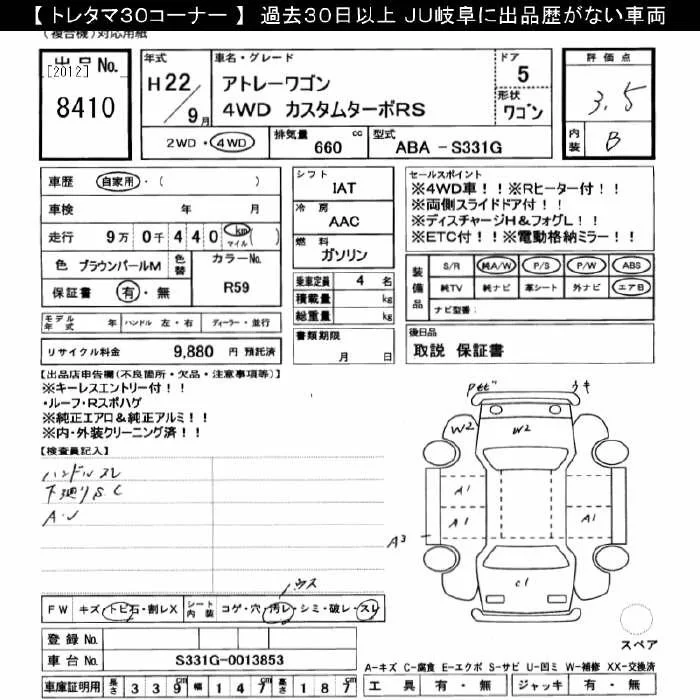 【 トレタマ30コーナー 】 過去30日以上 JU岐阜に出品歴がない車両
(複合機)対応用紙
出品No.
[2012]
8410
年式
H22/9月
車名・グレード
アトレーワゴン
4WD カスタムターボRS
ドア
5
形状
ワゴン
評価点
3.5
内装
B
2WD・4WD
排気量
660 cc
型式
ABA - S331G
車歴 自家用・( )
車検 年 月
走行 9万 0千 4 4 0 km マイル ( )
色 ブラウンパールM
色替
カラーNo.
R59
保証書 有・無
シフト
IAT
冷房
AAC
燃料
ガソリン
乗車定員 4 名
積載量 kg
総重量 kg
書類期限
月 日
セールスポイント
※4WD車!!※Rヒーター付!!
※両側スライドドア付!!
※ディスチャージH&フォグL!!
※ETC付!!※電動格納ミラー!!
装備品
S/R 純A/W P/S P/W ABS
純TV 純ナビ 革シート 外ナビ エアB
ナビ型番:
モデル年式 年 ハンドル 左・右 ディーラー・並行
リサイクル料金 9,880 円 預託済
後日品
取説 保証書
【出品店申告欄(不良箇所・欠品・注意事項等)】
※キーレスエントリー付!!
・ルーフ・Rスポハゲ
※純正エアロ&純正アルミ!!
※内・外装クリーニング済!!
【検査員記入】
ハンドルスレ
下廻りS C
A・U
ウス
W2
W2
A1
A1
A1
A3
C1
FW キズ・トビ石・割レX
シート内装
コゲ・穴・汚レ・シミ・破レ・スレ
登録No.
車台No. S331G-0013853
スペア
A-キズ C-腐食 E-エクボ S-サビ U-凹ミ W-補修 XX-交換済
車庫証明用 長さ 3 3 9 cm 幅 1 4 7 cm 高さ 1 8 7 cm
工具 有・無 ジャッキ 有・無